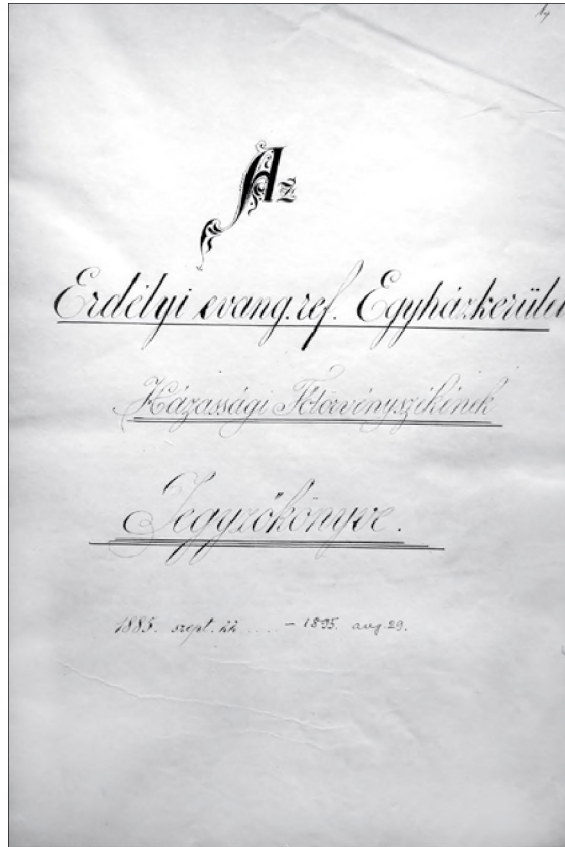 Az
Erdélyi evang. ref. Egyházkerület
Házassági Főtörvényszékének
Jegyzőkönyve.
1885. szept. 22 .... – 1895. aug. 29.